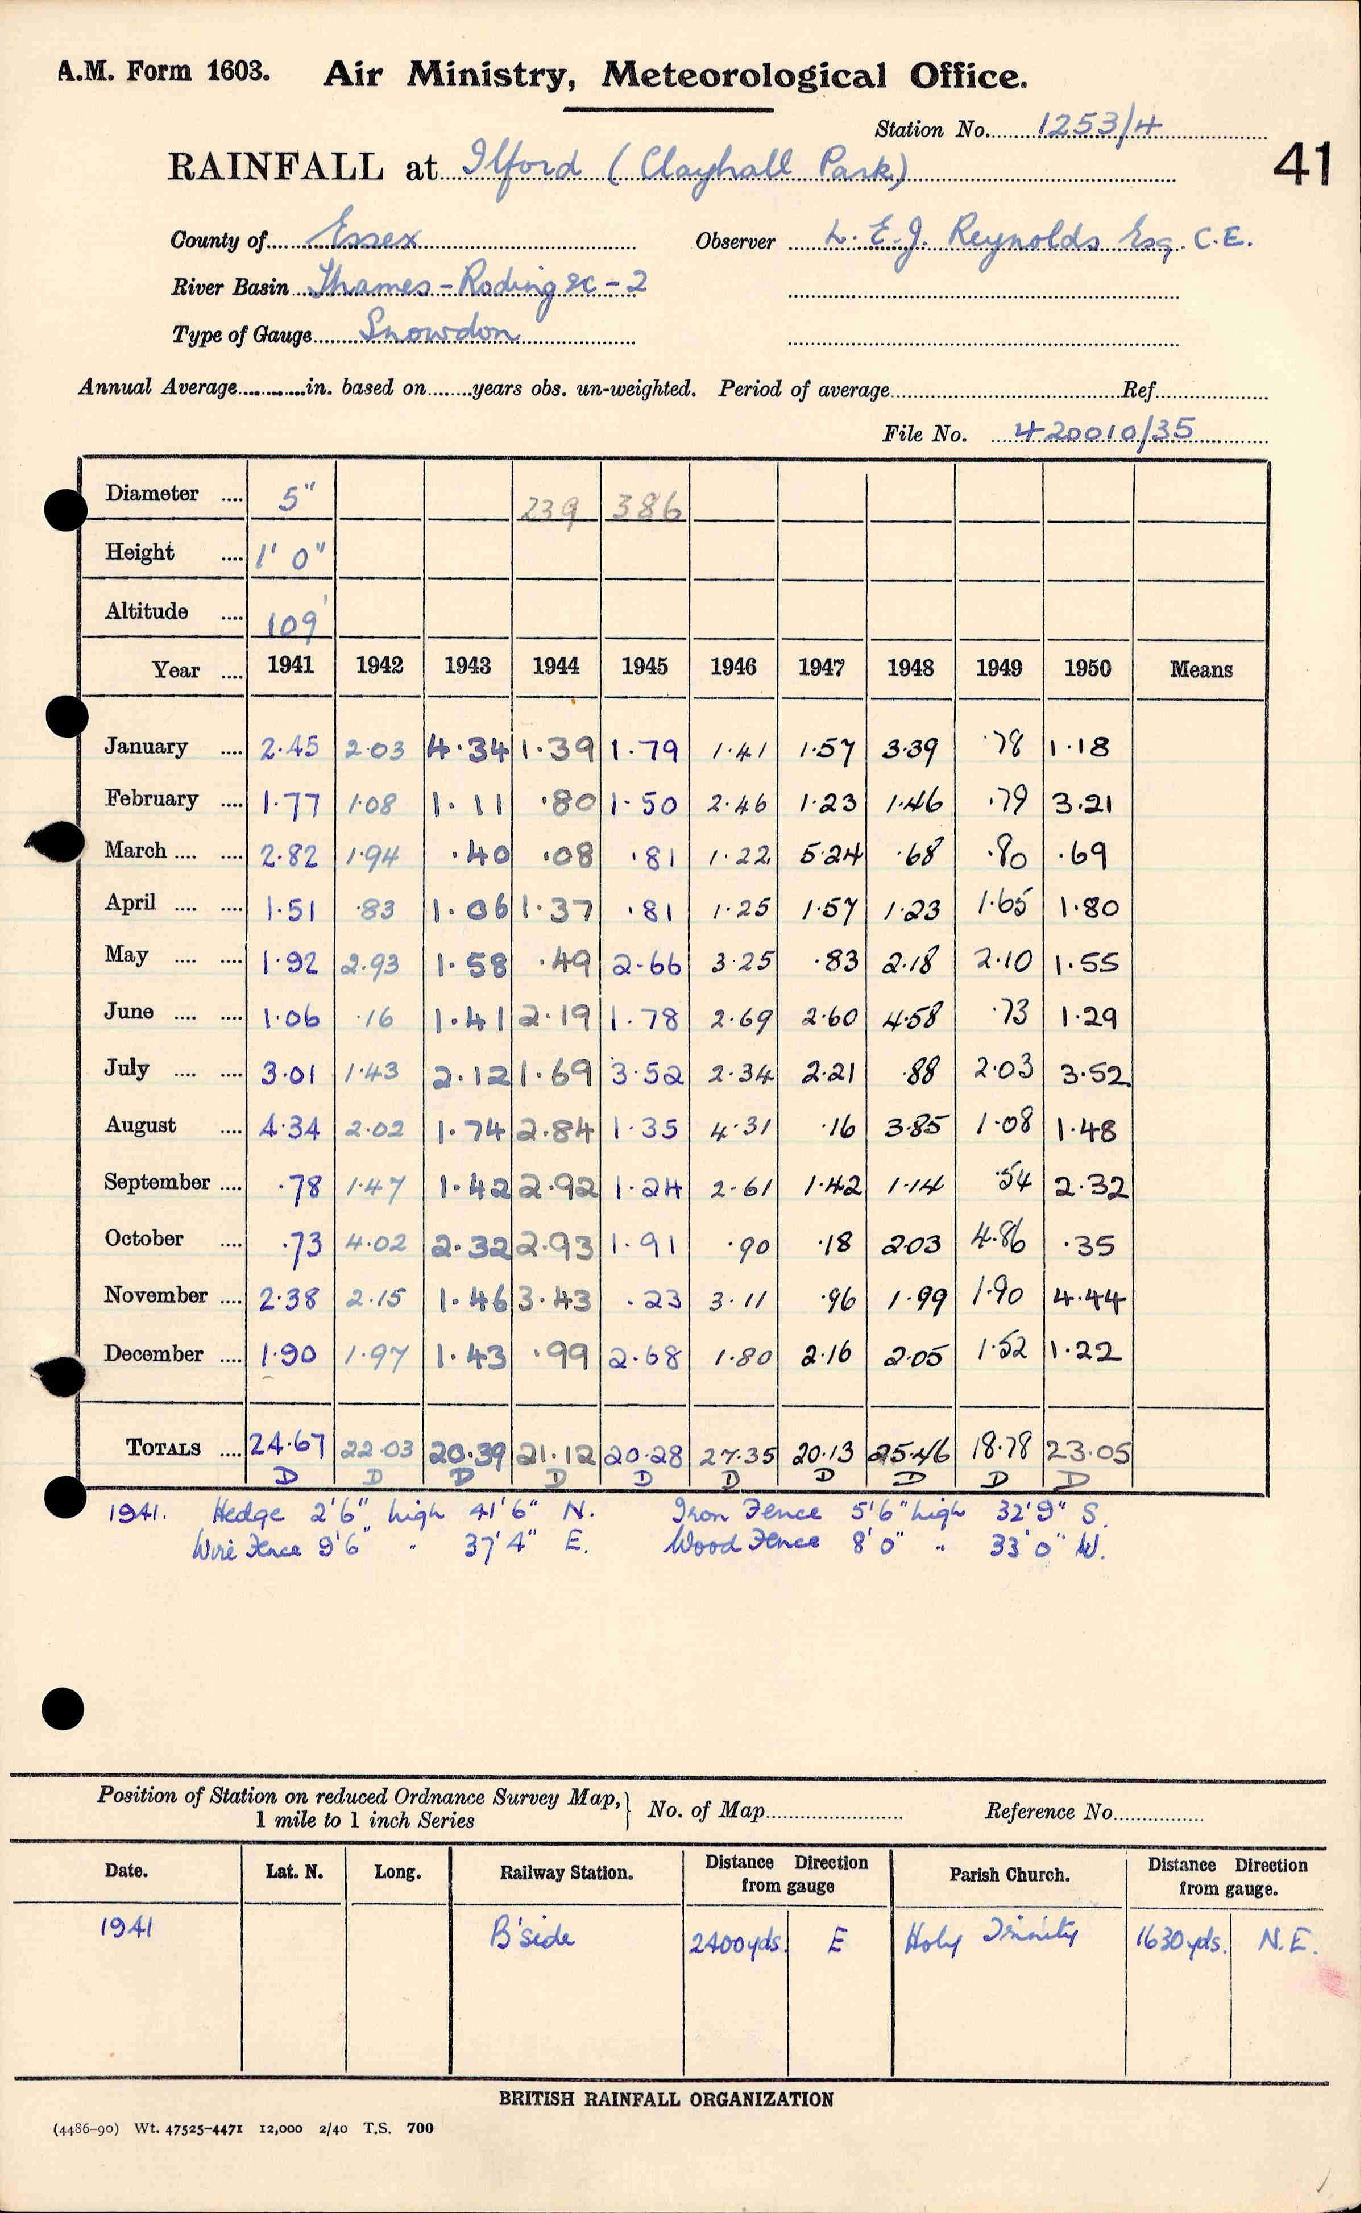 A.M. Form 1603. Air Ministry, Meteorological Office.
Station No. 1253/4
41
RAINFALL at Ilford (Clayhall Park)
County of Essex Observer L. E. J. Reynolds Esq. C.E.
River Basin Thames - Roding 2c - 2
Type of Gauge Snowdon
Annual Average in. based on years obs. un-weighted. Period of average Ref
File No. 420010/35
Diameter 5" 239 386
Height 1' 0"
Altitude 109'
Year 1941 1942 1943 1944 1945 1946 1947 1948 1949 1950 Means
January 2·45 2·03 4·34 1·39 1·79 1·41 1·57 3·39 ·78 1·18
February 1·77 1·08 1·11 ·80 1·50 2·46 1·23 1·46 ·79 3·21
March 2·82 1·94 ·40 ·08 ·81 1·22 5·24 ·68 ·80 ·69
April 1·51 ·83 1·06 1·37 ·81 1·25 1·57 1·23 1·65 1·80
May 1·92 2·93 1·58 ·49 2·66 3·25 ·83 2·18 2·10 1·55
June 1·06 ·16 1·41 2·19 1·78 2·69 2·60 4·58 ·73 1·29
July 3·01 1·43 2·12 1·69 3·52 2·34 2·21 ·88 2·03 3·52
August 4·34 2·02 1·74 2·84 1·35 4·31 ·16 3·85 1·08 1·48
September ·78 1·47 1·42 2·92 1·24 2·61 1·42 1·14 ·54 2·32
October ·73 4·02 2·32 2·93 1·91 ·90 ·18 2·03 4·86 ·35
November 2·38 2·15 1·46 3·43 ·23 3·11 ·96 1·99 1·90 4·44
December 1·90 1·97 1·43 ·99 2·68 1·80 2·16 2·05 1·52 1·22
TOTALS 24·67 22·03 20·39 21·12 20·28 27·35 20·13 25·46 18·78 23·05
D D D D D D D D D D
1941. Hedge 2'6" high 41'6" N. Iron Fence 5'6" high 32'9" S.
Wire Fence 9'6" " 37'4" E. Wood Fence 8'0" " 33'0" W.
Position of Station on reduced Ordnance Survey Map, 1 mile to 1 inch Series } No. of Map Reference No.
Date. Lat. N. Long. Railway Station. Distance Direction from gauge Parish Church. Distance Direction from gauge.
1941 B'side 2400yds. E Holy Trinity 1630yds. N.E.
BRITISH RAINFALL ORGANIZATION
(4486-90) Wt. 47525-4471 12,000 2/40 T.S. 700